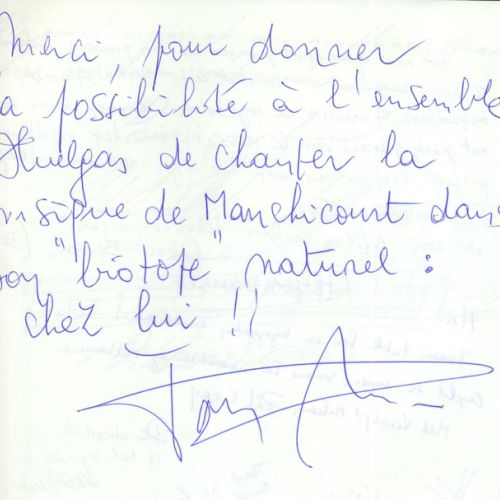 Merci, pour donner
la possibilité à l'ensemble
Huelgas de chanter la
musique de Manchicourt dans
son "biotope" naturel :
chez lui !!